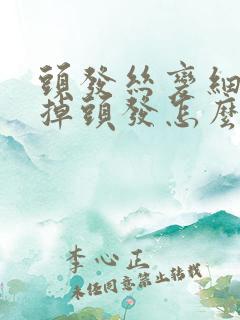 頭發絲變細
掉頭發怎麼
李心正
未经同意禁止转载